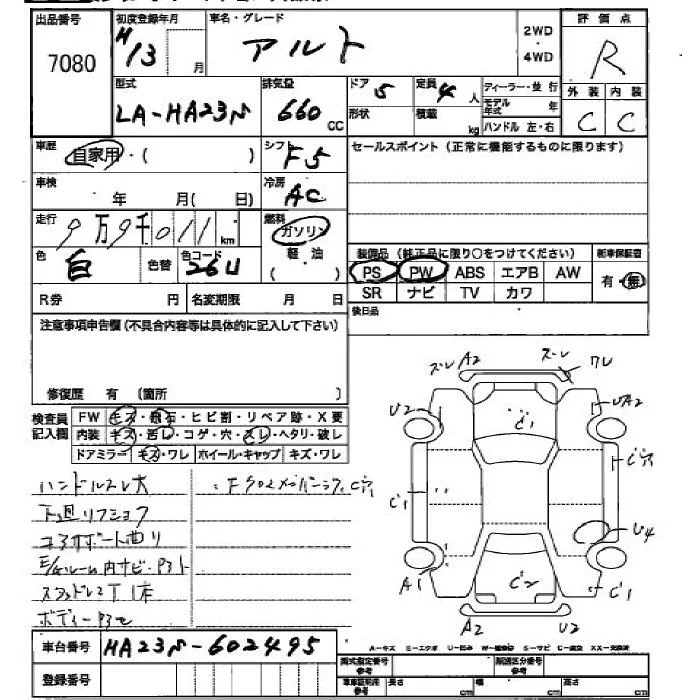 出品番号 初度登録年月 車名・グレード 2WD・4WD 評価点
7080 H/13 月 アルト R
型式 排気量 ドア 定員 ディーラー・並行 外装 内装
LA-HA23V 660 CC 5 4 人 モデル年式 年 C C
形状 積載 kg ハンドル 左・右
車歴 自家用・( ) シフト F5 セールスポイント(正常に機能するものに限ります)
車検 年 月( 日) 冷房 AC
走行 9万9千011km 燃料 ガソリン
軽油
( )
色 白 色替 色コード 26U
装備品(純正品に限り○をつけてください) 新車保証書
PS PW ABS エアB AW 有・無
SR ナビ TV カワ
R券 円 名変期限 月 日 後日品
注意事項申告欄(不具合内容等は具体的に記入して下さい)
修復歴 有 (箇所 )
検査員記入欄 FW キズ・飛石・ヒビ割・リペア跡・X要
内装 キズ・汚レ・コゲ・穴・スレ・ヘタリ・破レ
ドアミラー キズ・ワレ ホイール・キャップ キズ・ワレ
ハンドルスレ大
下廻リフショク
コアサポート曲リ
E/gルーム内サビ・
スタッドレスT1本
ボディー
A2 ズレ ズレ ワレ
U2 UA2
C1
C1 C穴
U4
A1 C2 C1
A2 U2
車台番号 HA23V-602495
登録番号
A-キズ E-エクボ U-凹ミ W-補修跡 S-サビ C-腐食 XX-交換済
型式指定番号 参考 類別区分番号 参考
車車証明用 参考 長さ cm 幅 cm 高さ cm